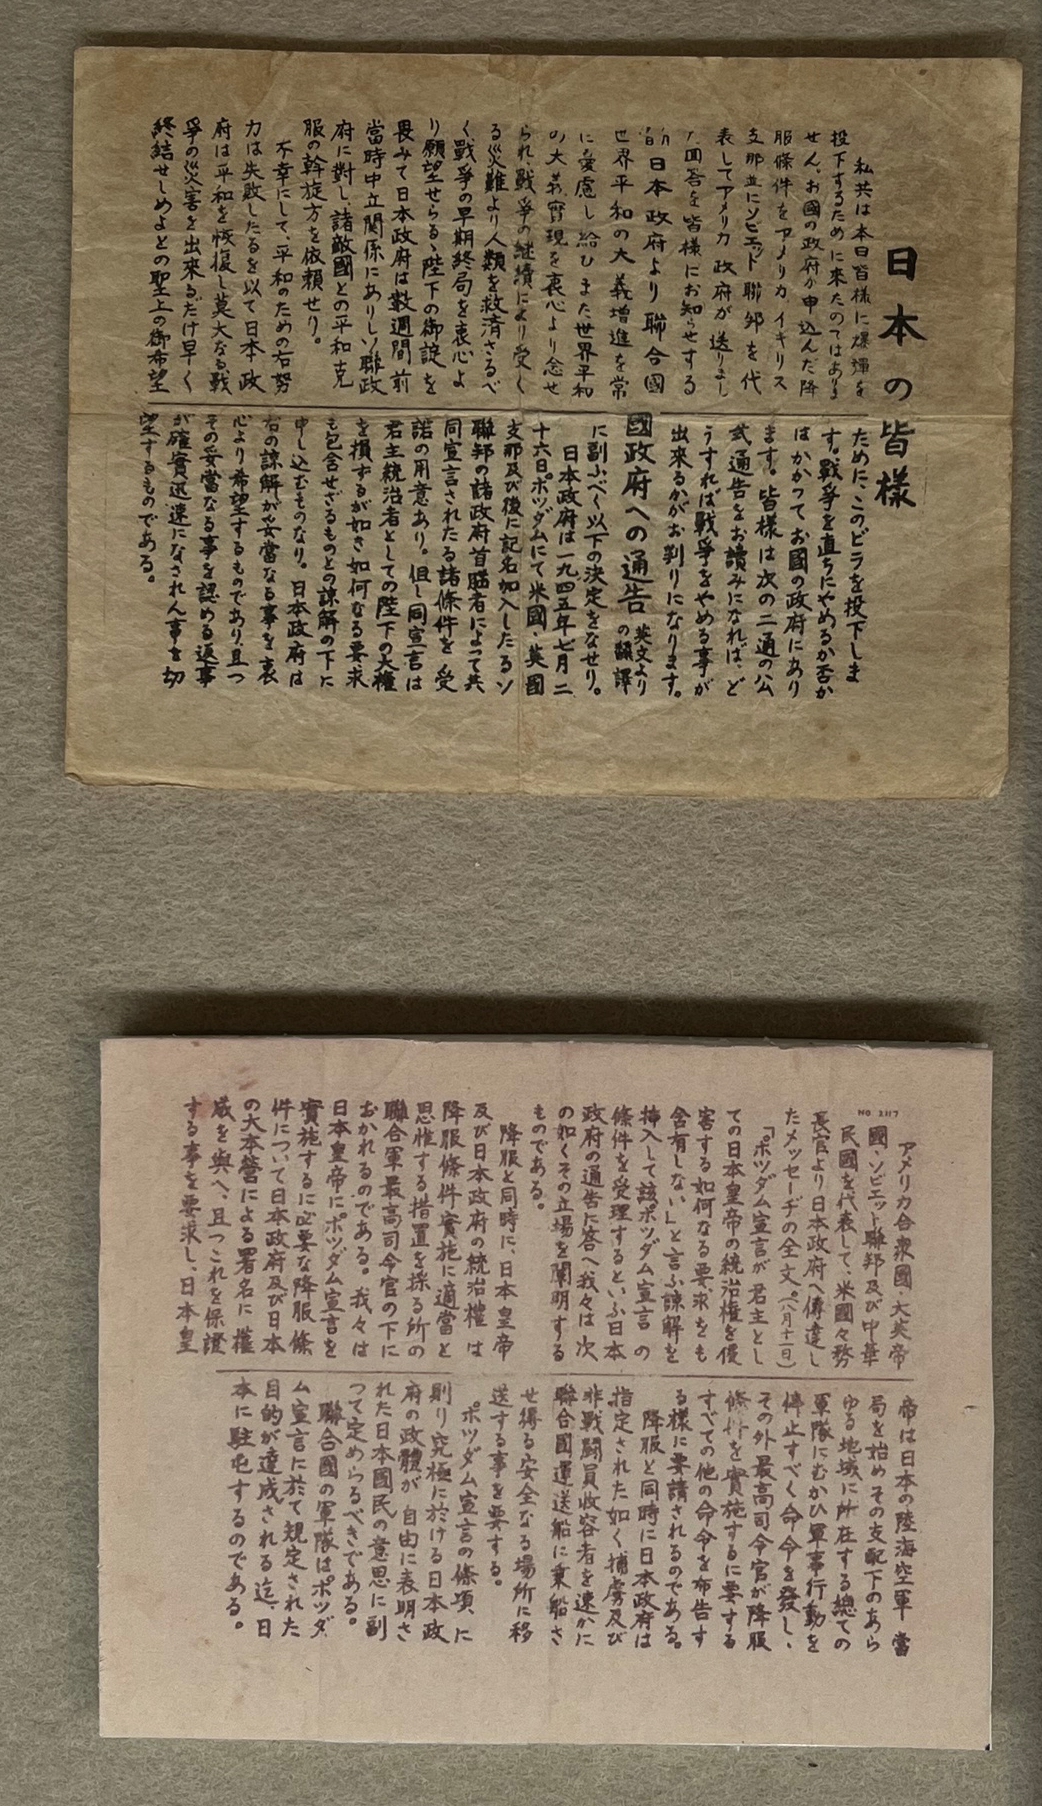 日本の皆様
私共は本日皆様に爆彈を
投下するために来たのではありま
せん。お國の政府が申込んだ降
服條件をアメリカ、イギリス
支那並にソビエット聯邦を代
表してアメリカ政府が送りまし
た回答を皆様にお知らせする
ために、このビラを投下しま
す。戰爭を直ちにやめるか否か
はかかつてお國の政府にあり
ます。皆様は次の二通の公
式通告をお讀みになれば、ど
うすれば戰爭をやめる事が
出來るかがお判りになります。
日本政府より聯合國
國政府への通告 英文よりの飜譯
世界平和の大義増進を常
に憂慮し給ひまた世界平和
の大義實現を衷心より念せ
られ、戰爭の継續により受く
る災難より人類を救済さるべ
く、戰爭の早期終局を衷心よ
り願望せらるゝ陛下の御諚を
畏みて日本政府は數週間前
當時中立関係にありしソ聯政
府に對し、諸敵國との平和克
服の幹旋方を依頼せり。
不幸にして、平和のための右努
力は失敗したるを以て日本政
府は平和を恢復し莫大なる戰
爭の災害を出來るだけ早く
終結せしめよとの聖上の御希望
に副ふべく以下の決定をなせり。
日本政府は一九四五年七月二
十六日。ポツダムにて米國、英國
支那及び後に記名加入したるソ
聯邦の諸政府首脳者によって共
同宣言されたる諸條件を受
諾の用意あり。但し同宣言は
君主統治者としての陛下の大権
を損するが如き如何なる要求
も包含せざるものとの諒解の下に
申し込むものなり。日本政府は
右の諒解が妥當なる事を衷
心より希望するものであり、且つ
その妥當なる事を認める返事
が確實迅速になされん事を切
望するものである。
NO 2117
アメリカ合衆國、大英帝
國、ソビエット聯邦及び中華
民國を代表して、米國々務
長官より日本政府へ傳達し
たメッセーヂの全文。(八月十一日)
「ポツダム宣言が君主とし
ての日本皇帝の統治権を侵
害する如何なる要求をも
含有しない」と言ふ諒解を
挿入して該ポツダム宣言の
條件を受理するといふ日本
政府の通告に答へ我々は次
の如くその立場を闡明する
ものである。
降服と同時に、日本皇帝
及び日本政府の統治權は
降服條件實施に適當と
思惟する措置を採る所の
聯合軍最高司令官の下に
おかれるのである。我々は
日本皇帝にポツダム宣言を
實施するに必要な降服條
件について日本政府及び日本
の大本營による署名に權
威を與へ、且つこれを保證
する事を要求し、日本皇
帝は日本の陸海空軍當
局を始めその支配下のあら
ゆる地域に所在する總ての
軍隊にむかひ軍事行動を
停止すべく命令を發し、
その外最高司令官が降服
條件を實施するに要する
すべての他の命令を布告す
る様に要請されるのである。
降服と同時に日本政府は
指定された如く捕虜及び
非戰闘員收容者を速かに
聯合國運送船に乗船さ
せ得る安全なる場所に移
送する事を要する。
ポツダム宣言の條項に
則り究極に於ける日本政
府の政體が自由に表明さ
れた日本國民の意思に副
つて定めらるべきである。
聯合國の軍隊はポツダ
ム宣言に於て規定された
目的が達成される迄、日
本に駐屯するのである。